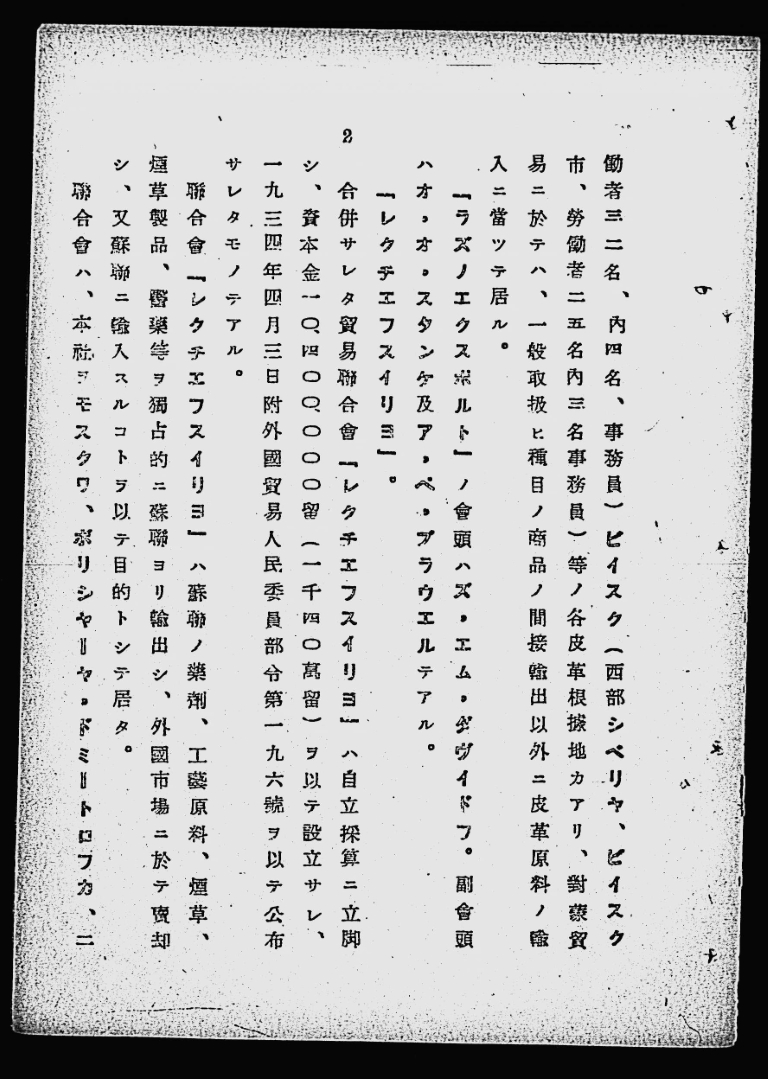 働者三二名、內四名、事務員)ビイスク(西部シベリヤ、ビイスク
市、勞働者二五名內三名事務員)等ノ各皮革根據地カアリ、對蒙貿
易ニ於テハ、一般取扱ヒ種目ノ商品ノ間接輸出以外ニ皮革原料ノ輸
入ニ當ツテ居ル。
「ラズノエクスポルト」ノ會頭ハズ・エム・ダヴイドフ。副會頭
ハオ・オ・スタンケ及ア・ペ・プラウエルテアル。
2
「レクチエフスイリヨ」。
合併サレタ貿易聯合會「レクチエフスイリヨ」ハ自立採算ニ立脚
シ、資本金一〇、四〇〇、〇〇〇留(一千四〇萬留)ヲ以テ設立サレ、
一九三四年四月三日附外國貿易人民委員部令第一九六號ヲ以テ公布
サレタモノテアル。
聯合會「レクチエフスイリヨ」ハ蘇聯ノ藥劑、工藝原料、煙草、
煙草製品、醫藥等ヲ獨占的ニ蘇聯ヨリ輸出シ、外國市場ニ於テ賣却
シ、又蘇聯ニ輸入スルコトヲ以テ目的トシテ居タ。
聯合會ハ、本社ヲモスクワ、ボリシヤーヤ・ドミートロフカ、二